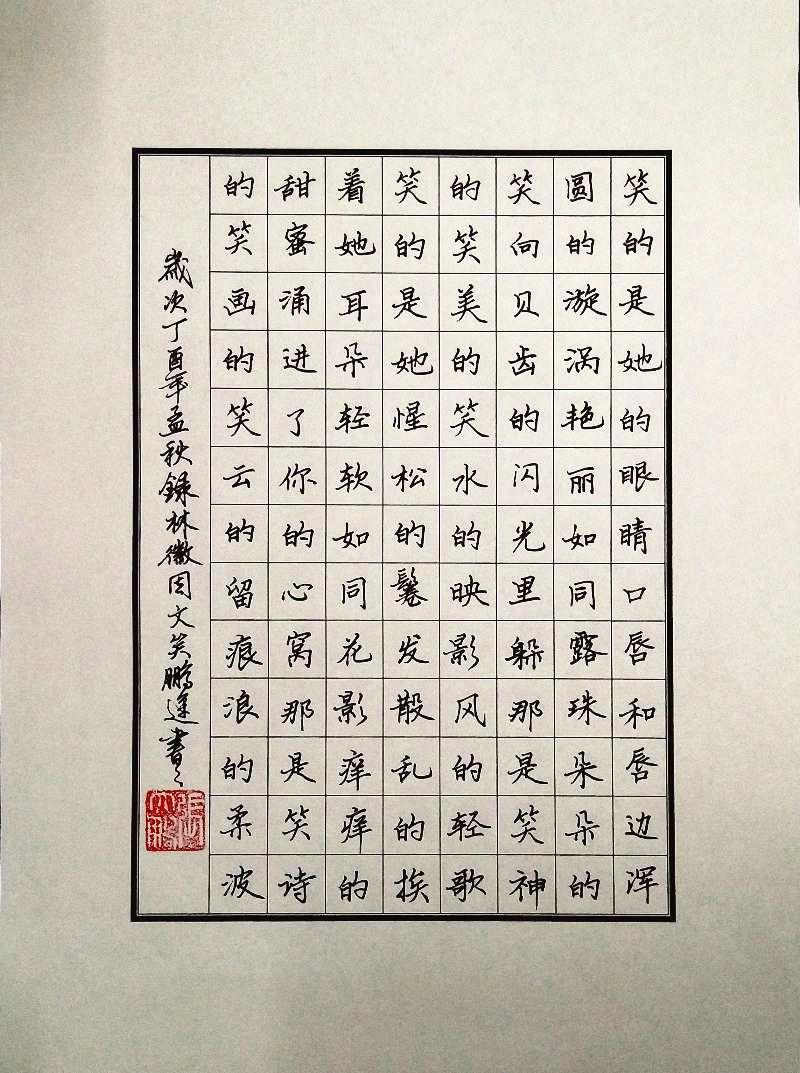 笑的是她的眼睛口唇和唇边浑
圆的漩涡艳丽如同露珠朵朵的
笑向贝齿的闪光里躲那是笑神
的笑美的笑水的映影风的轻歌
笑的是她惺松的鬈发散乱的挨
着她耳朵轻软如同花影痒痒的
甜蜜涌进了你的心窝那是笑诗
的笑画的笑云的留痕浪的柔波
歲次丁酉年孟秋録林徽因文笑鹏逵書之